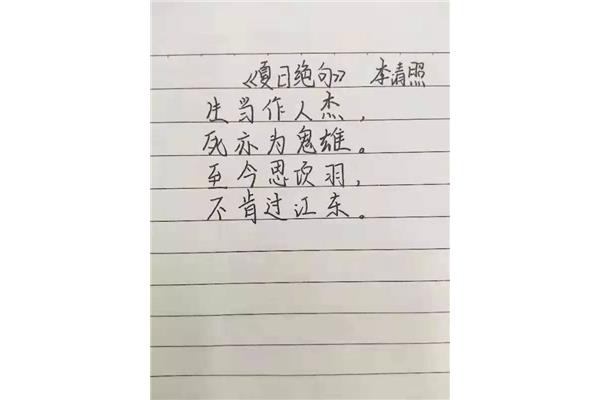 《夏日绝句》 李清照
生当作人杰，
死亦为鬼雄。
至今思项羽，
不肯过江东。